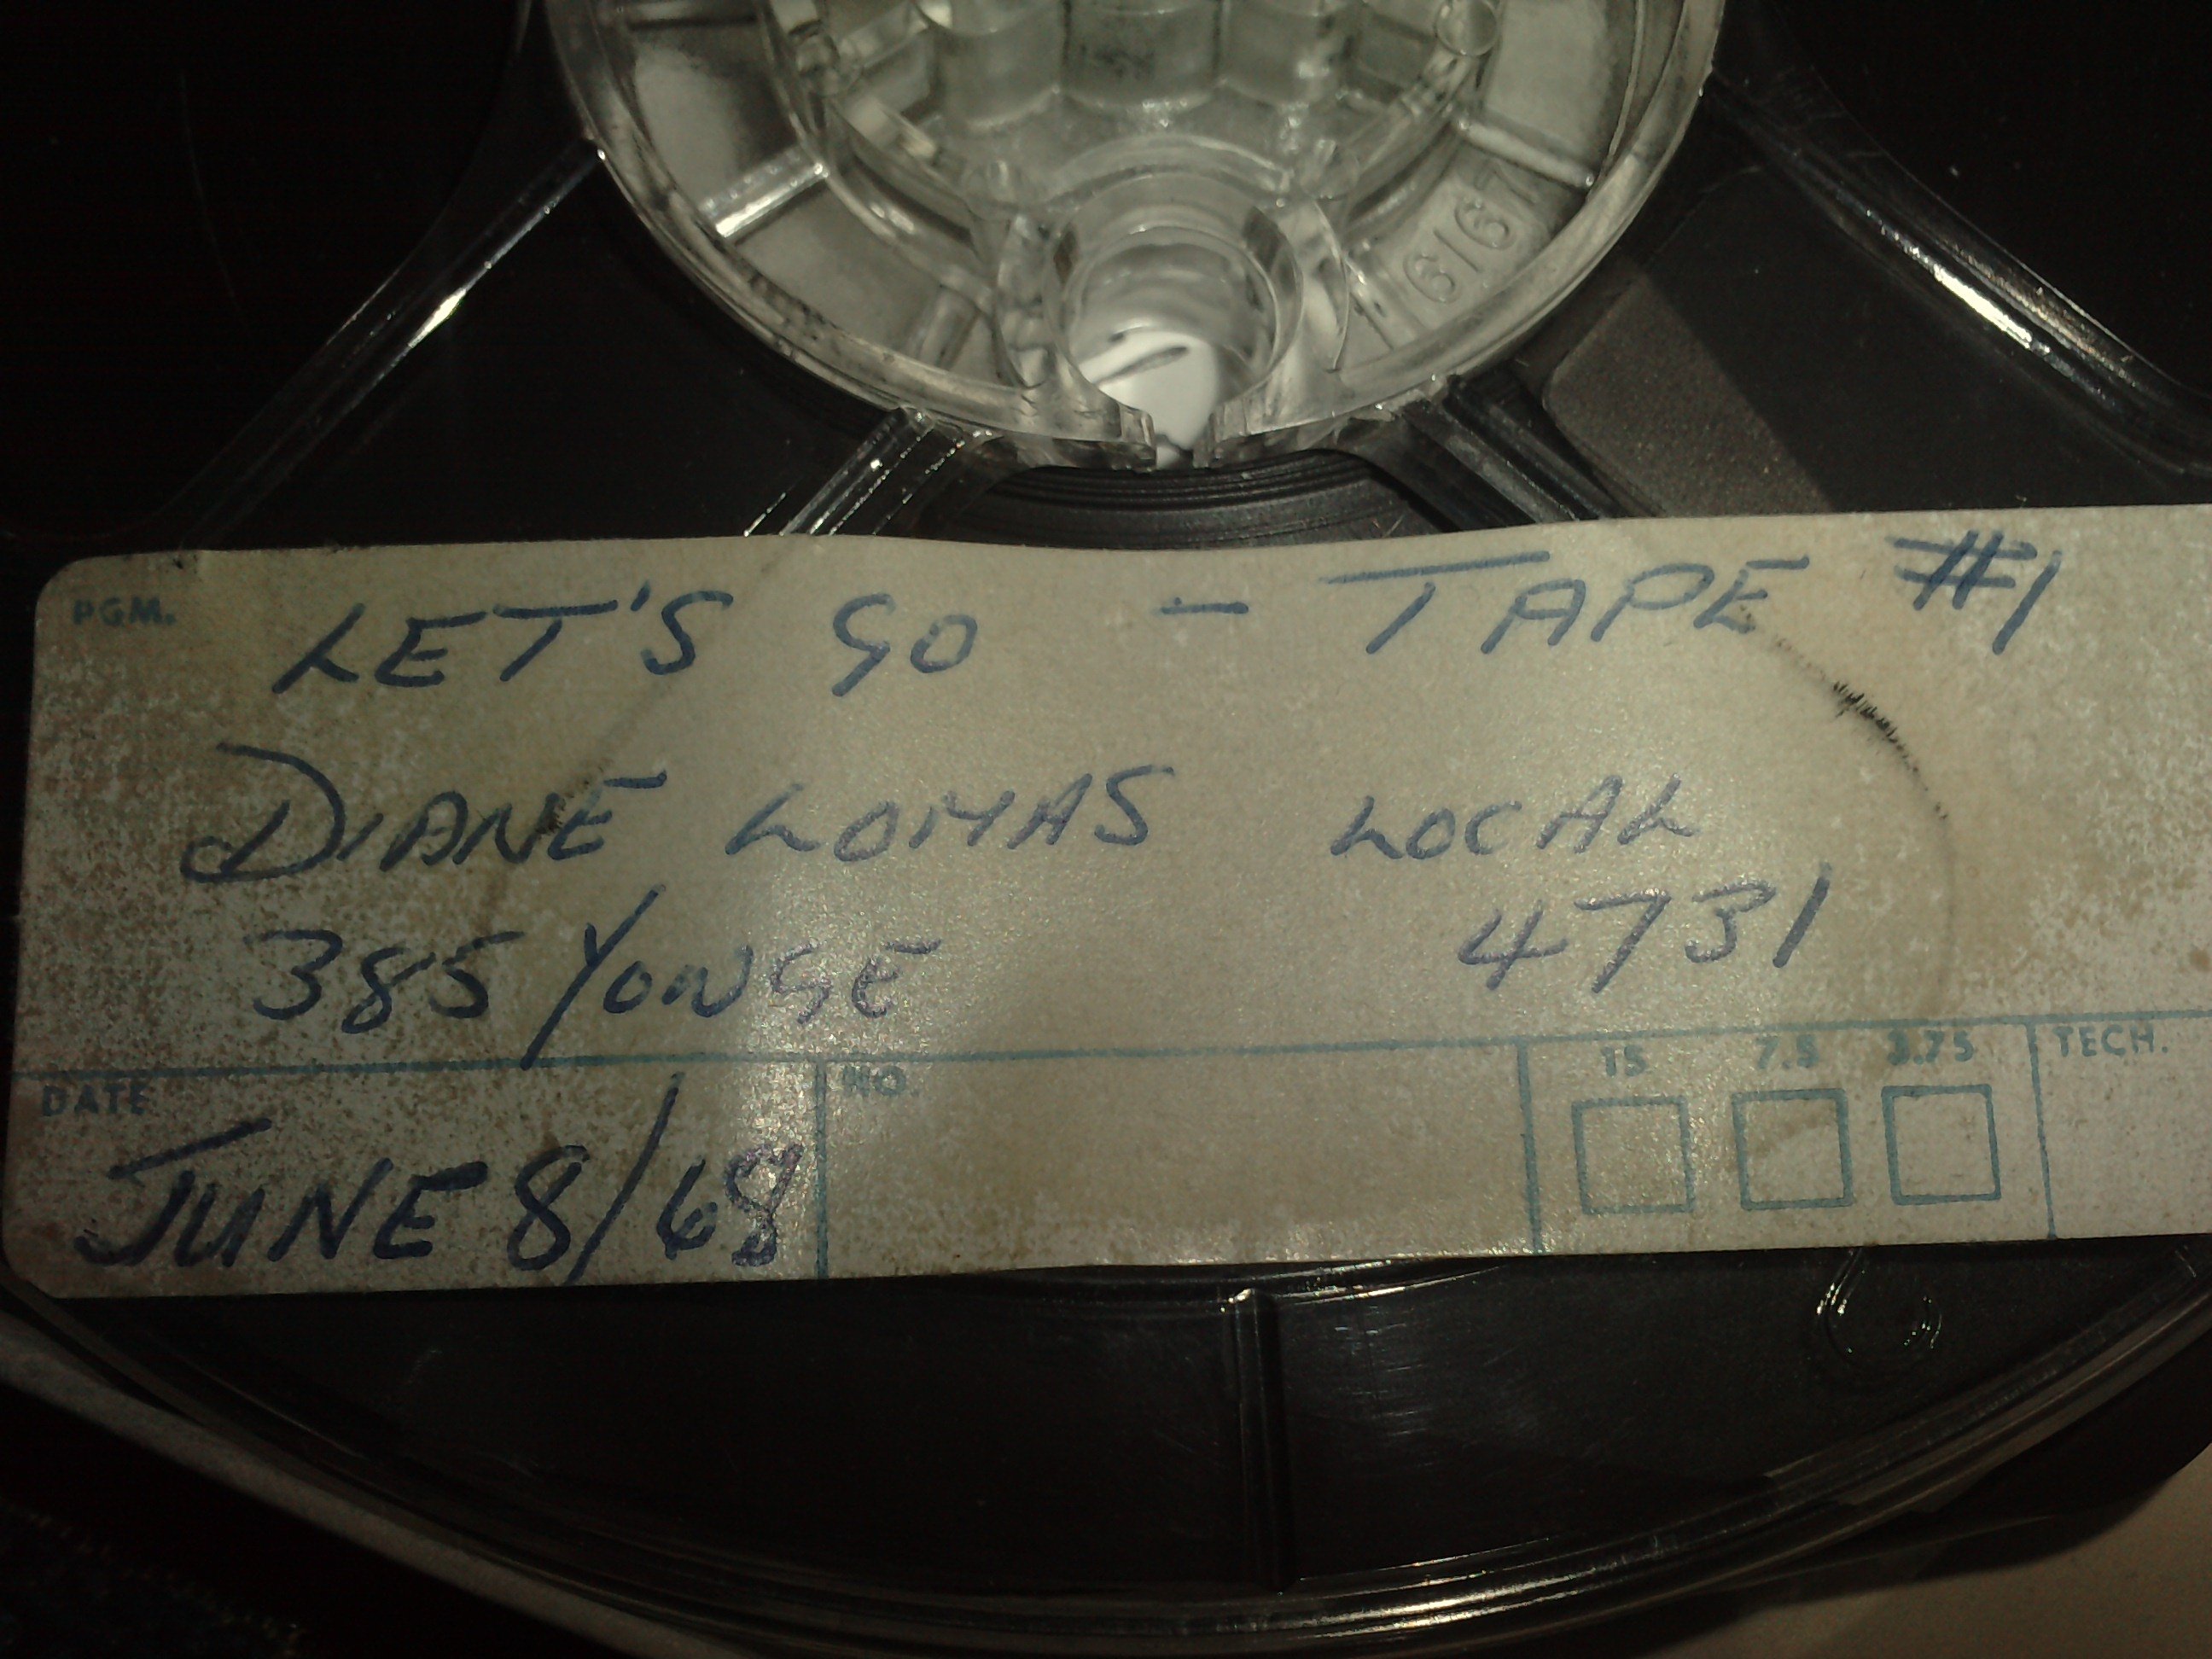 6167
PGM.
LET'S GO - TAPE #1
DIANE LOMAS LOCAL
385 YONGE 4731
DATE NO. 15 7.5 3.75 TECH.
JUNE 8/68